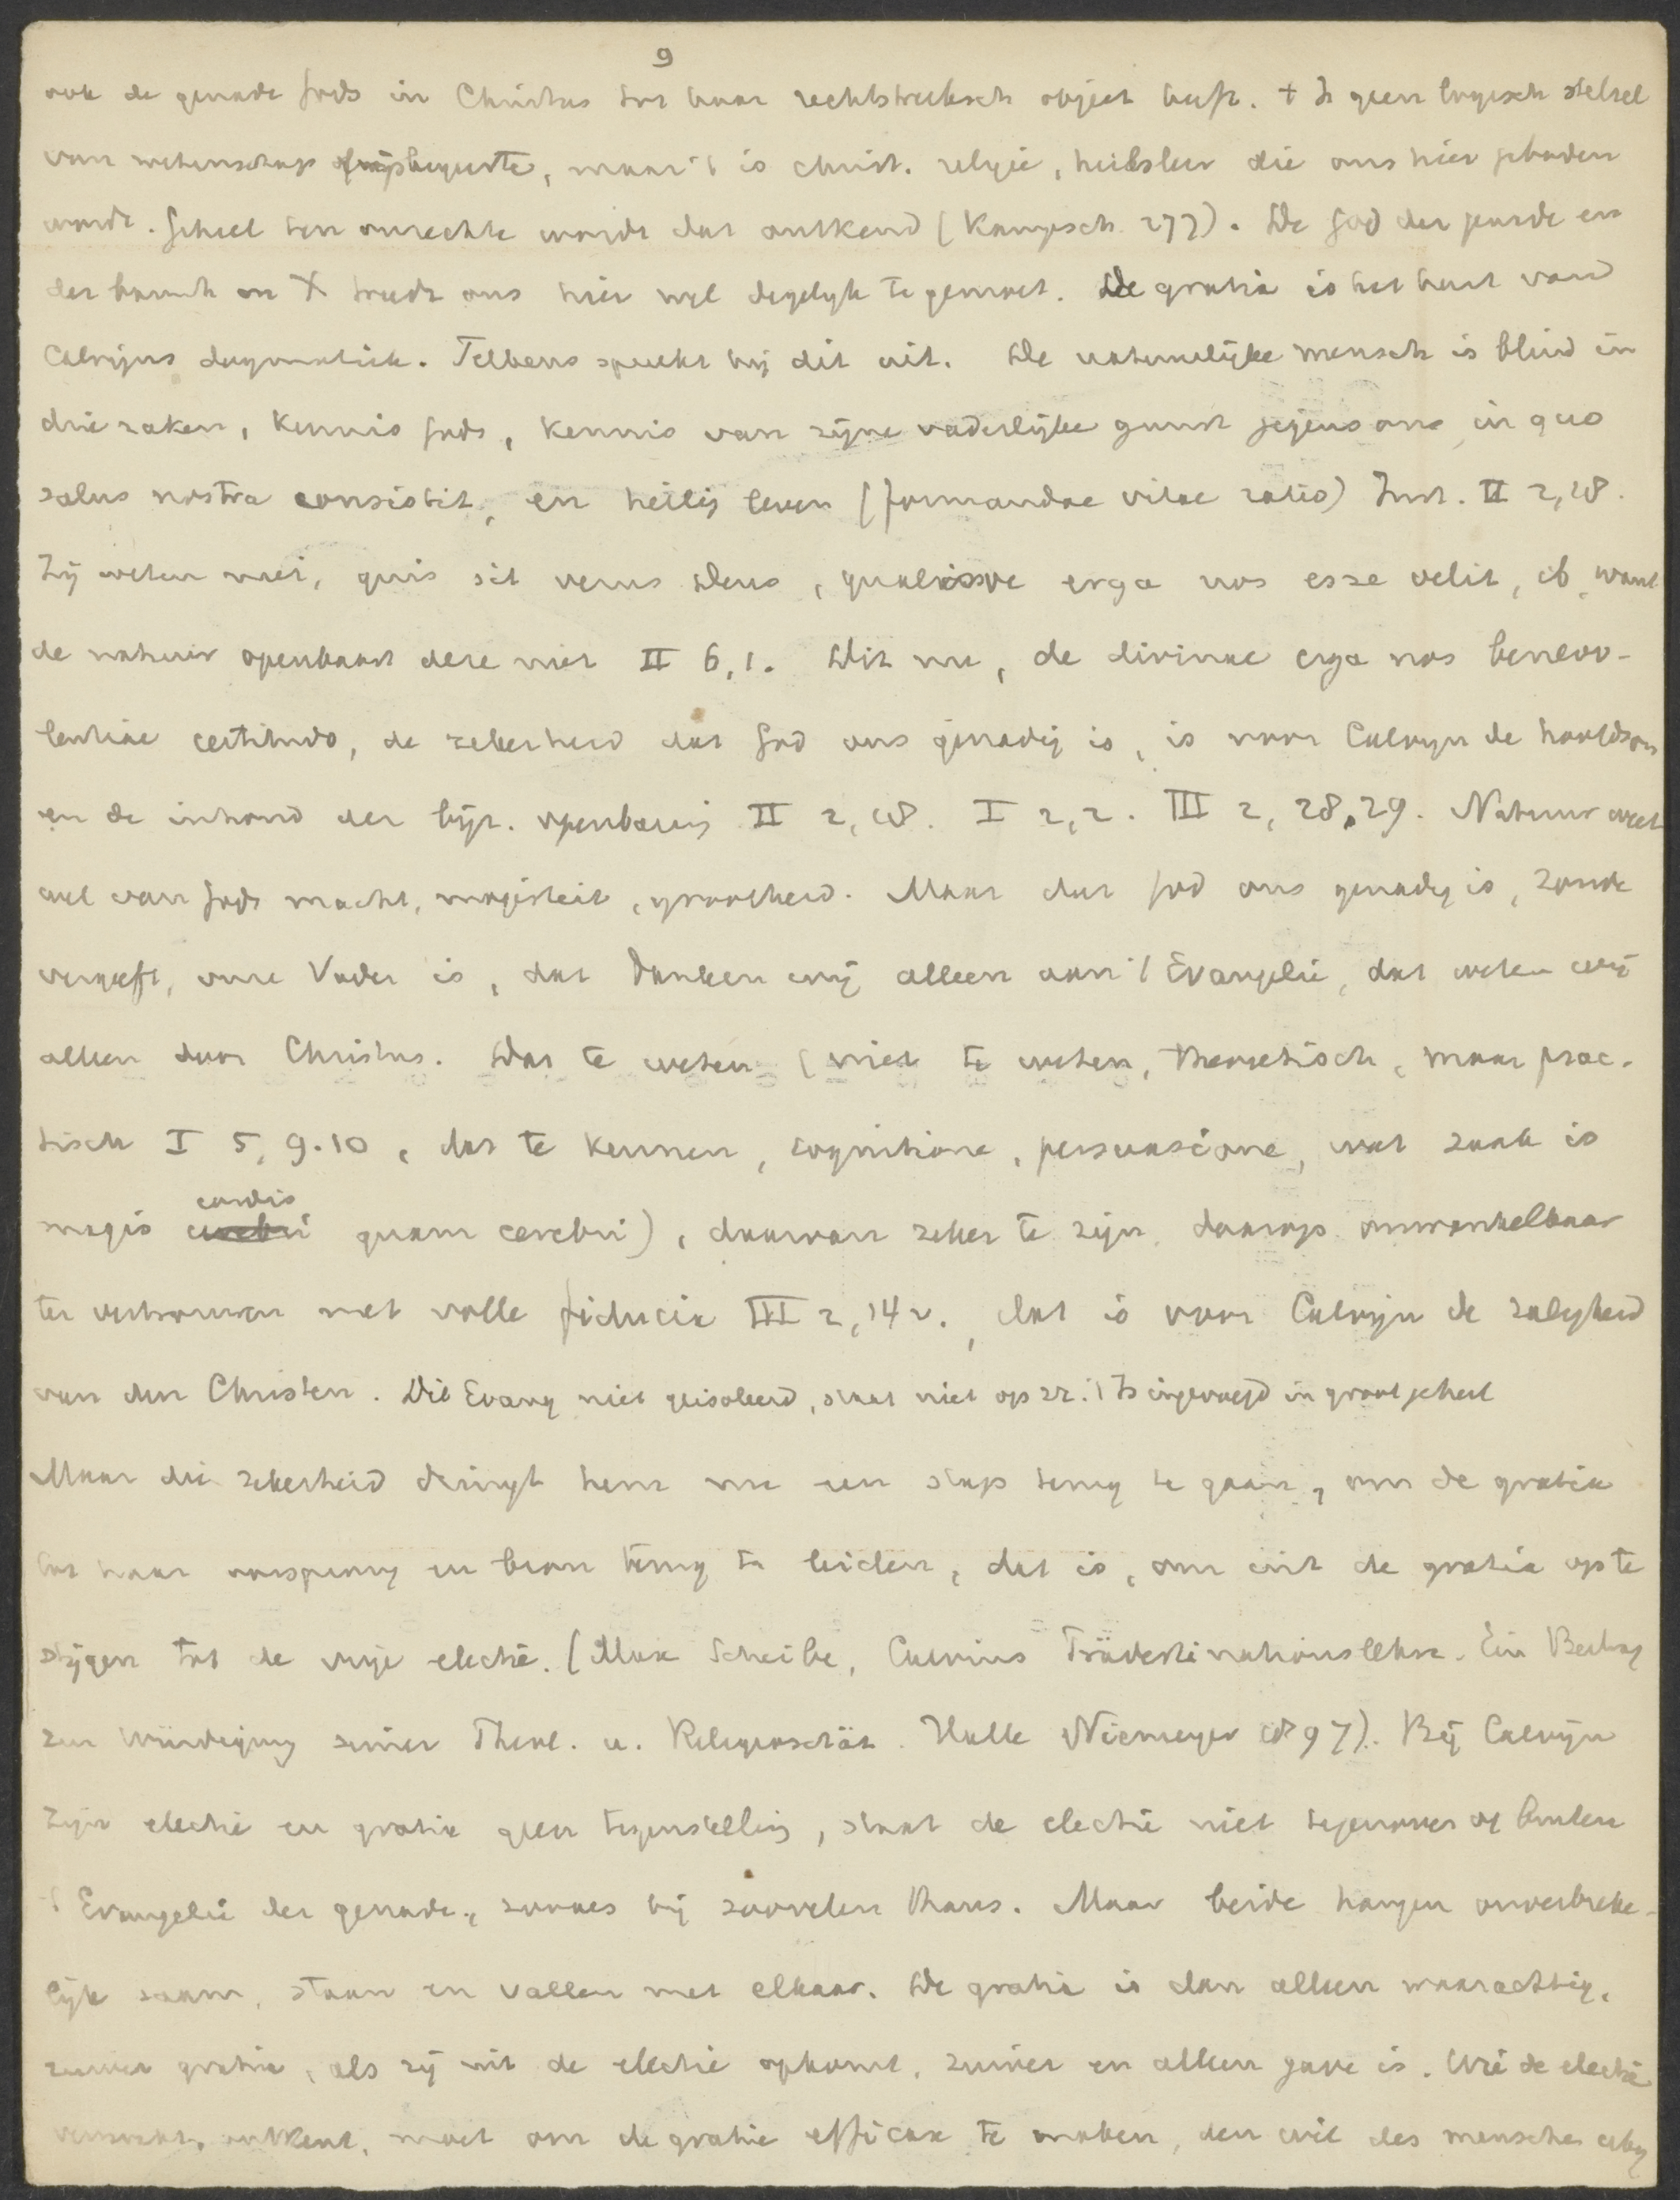 9
ook de genade Gods in Christus tot haar rechtstreeksch object heeft. + Is geen logisch stelsel
van wetenschap of wijsbegeerte, maar 't is christ. religie, heilsleer die ons hier geboden
wordt. Geheel ten onrechte wordt dat ontkend (Kampsch. 277). De God der genade en
der barmh in X treedt ons hier wel degelijk te gemoet. De gratia is het hart van
Calvijns dogmatiek. Telkens spreekt hij dit uit. De natuurlijke mensch is blind in
drie zaken, kennis Gods, kennis van zijne vaderlijke gunst jegens ons, in quo
salus nostra consistit, en heilig leven (formandae vitae ratio) Inst. II 2, 18.
Zij weten niet, quis sit verus Deus, qualisve erga nos esse velit, ib, want
de natuur openbaart deze niet II 6, 1. Dit nu, de divinae erga nos benevo-
lentiae certitudo, de zekerheid dat God ons genadig is, is voor Calvijn de hoofdsom
en de inhoud der bijz. openbaring II 2, 18. I 2, 2. III 2, 28, 29. Natuur weet
wel van Gods macht, majesteit, grootheid. Maar dat God ons genadig is, zonde
vergeeft, onze Vader is, dat danken wij alleen aan 't Evangelie, dat weten wij
alleen door Christus. Dat te weten (niet te weten, theoretisch, maar prac-
tisch I 5, 9.10, dat te kennen, cognitione, persuasione, wat zaak is
magis cordis quam cerebri), daarvan zeker te zijn, daarop onwankelbaar
te vertrouwen met volle fiducia III 2, 14 v., dat is voor Calvijn de zaligheid
van den Christen. Dit Evang niet geisoleerd, staat niet op zz. 't Is ingevoegd in groot geheel
Maar die zekerheid dringt hem nu een stap terug te gaan, om de gratia
tot haar oorsprong en bron terug te leiden, dat is, om uit de gratia op te
stijgen tot de vrije electie. (Max Scheibe, Calvins Prädestinationslehre. Ein Beitrag
zur Würdigung seiner Theol. u. Religiosität. Halle Niemeyer 1897). Bij Calvijn
zijn electie en gratie geen tegenstelling, staat de electie niet tegenover of buiten
't Evangelie der genade, zooals bij zoovelen thans. Maar beide hangen onverbreke-
lijk saam, staan en vallen met elkaar. De gratie is dan alleen waarachtig,
zuiver gratie, als zij uit de electie opkomt, zuiver en alleen gave is. Wie de electie
verzwakt, ontkent, moet om de gratie efficax te maken, den wil des menschen